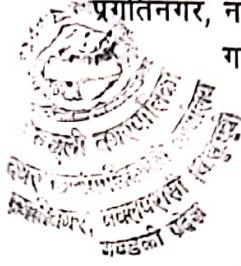 प्रगतिनगर, न
ग
देवचुली नगरपालिका
नगर कार्यपालिकाको कार्यालय
प्रगतिनगर, नवलपरासी
गण्डकी प्रदेश